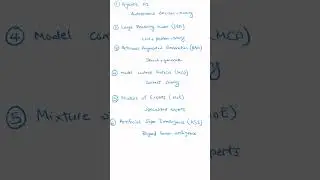 ① Agentic AI
Autonomous decision-making
② Large Reasoning Model (LRM)
Logical problem-solving
③ Retrieval Augmented Generation (RAG)
Search + generate
④ Model Context Protocol (MCP)
Context sharing
⑤ Mixture of Experts (MoE)
Specialized experts
⑥ Artificial Super Intelligence (ASI)
Beyond human intelligence
④
Model con
MCP)
⑤ Mixture o
oE)
perts